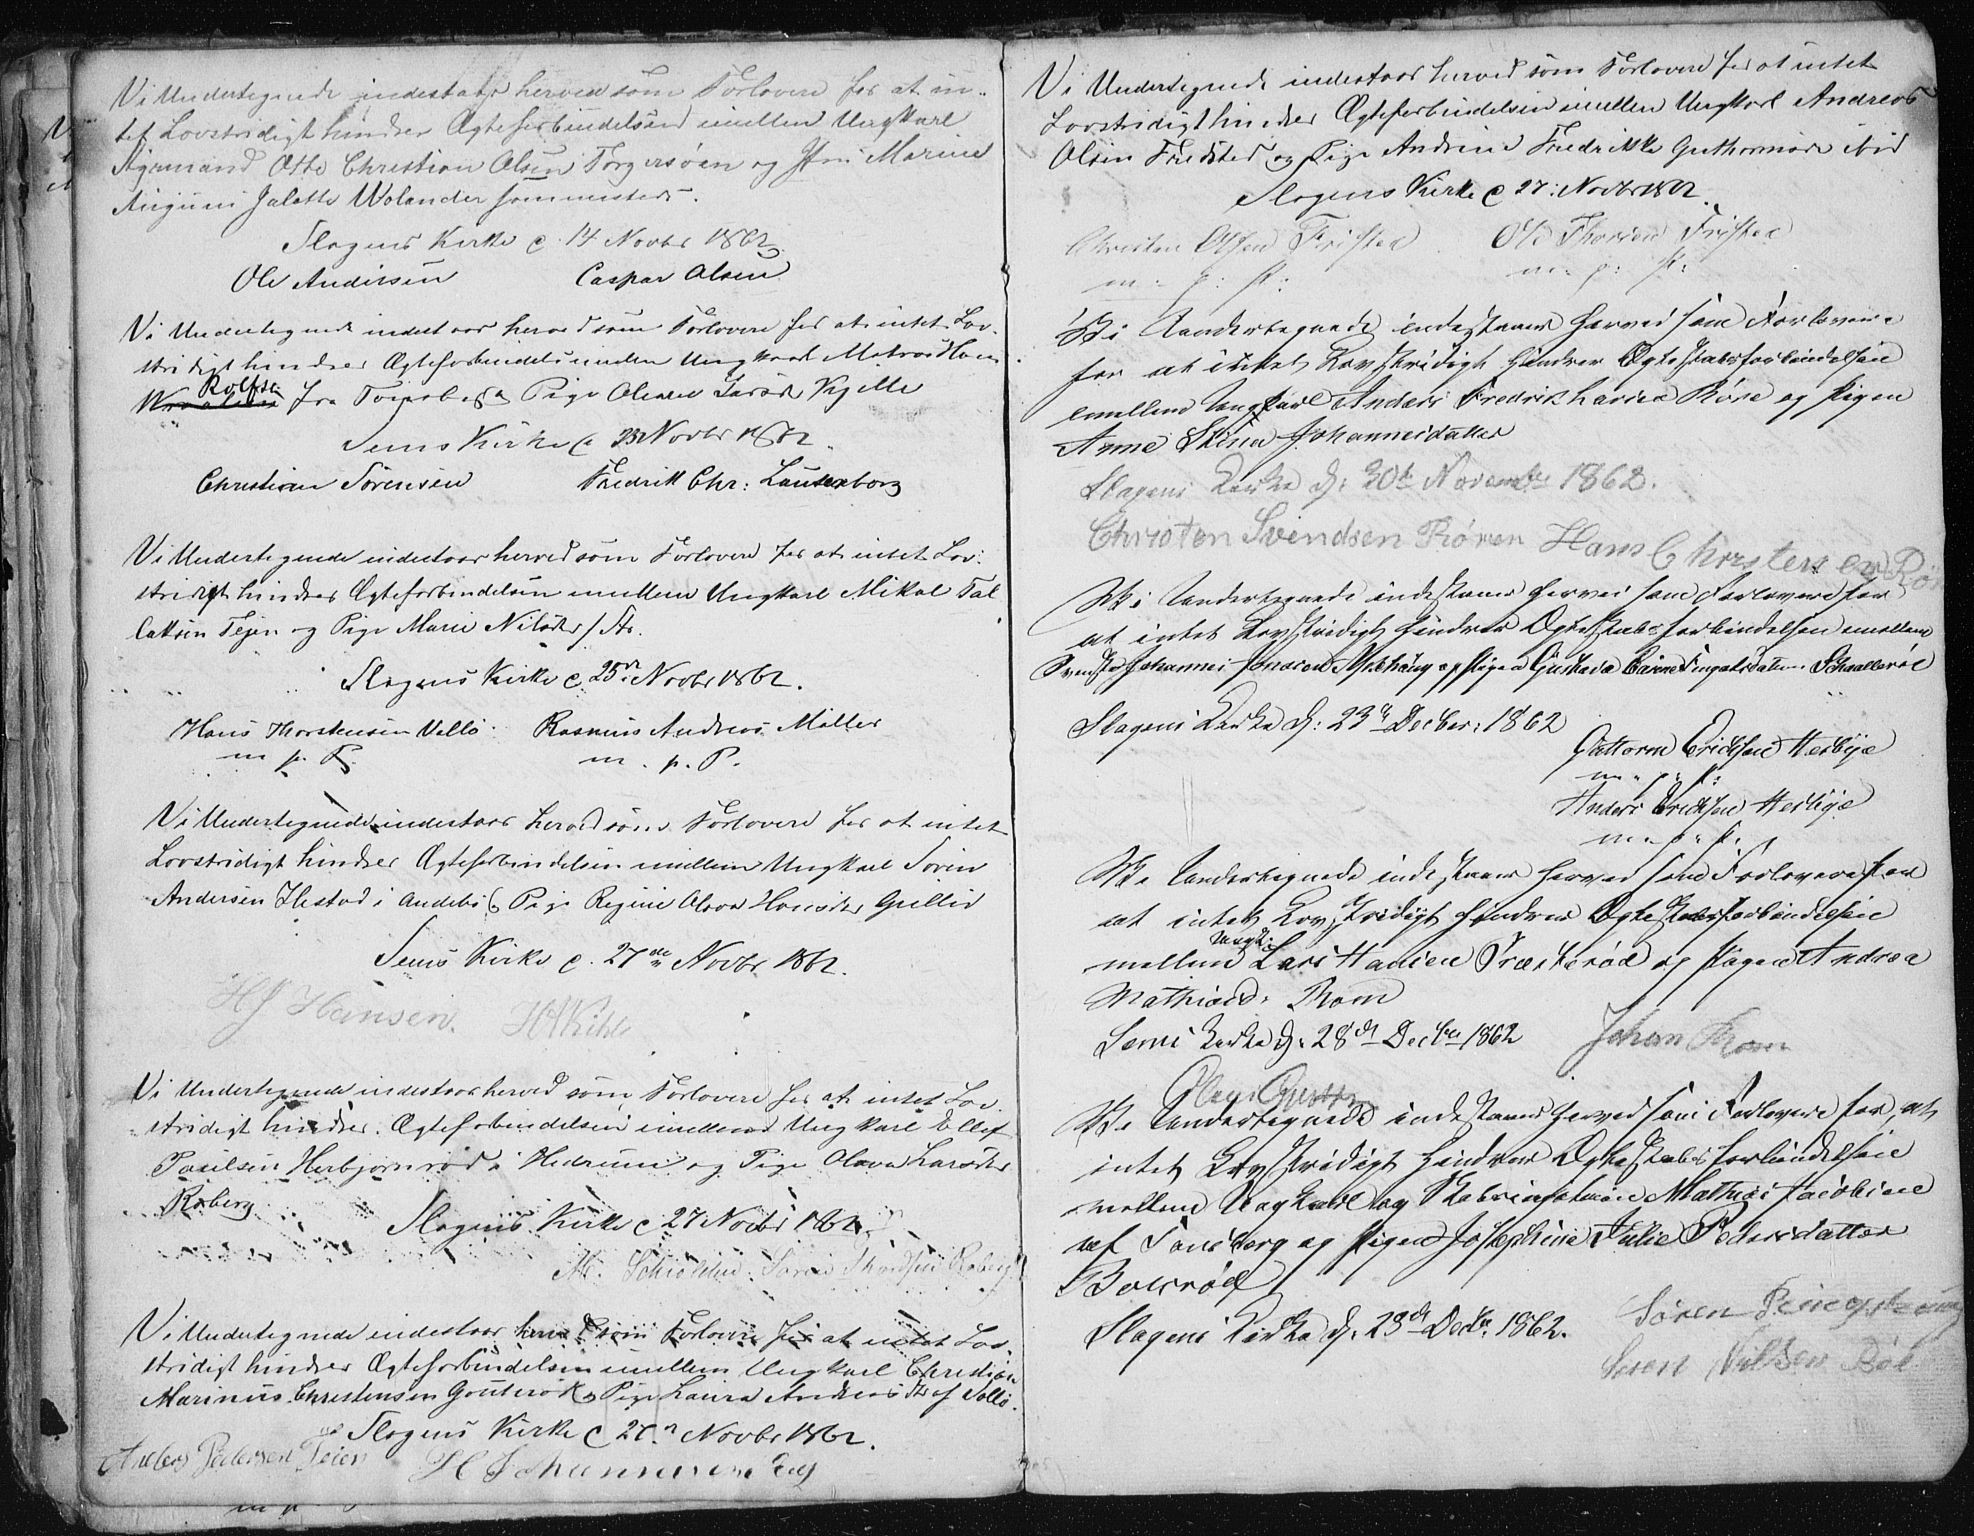 Vi Undertegnede indestaar herved som Forlovere for at in-
tet Lovstridigt hindrer Ægteforbindelsen imellem Ungkarl
Otte Christian Olsen Torgersøen og Marine
Jalette Wolander sammesteds.
Slagens Kirke d. 14 Novbr 1862
Ole Andersen Caspar Olsen
Vi Undertegnede indestaar herved som Forlovere for at intet Lov-
stridigt hindrer Ægteforbindels imellem Ungkarl
Rolfsen fra Tønsberg og Pige Olsdr Kjille
Sems Kirke d 23 Novbr 1862
Christian Sörensen Fredrik Chr: Lauterborg
Vi Undertegnede indestaar herved som Forlovere for at intet Lov-
stridigt hindrer Ægteforbindelsen imellem Ungkarl Mikal Tal
laksen Tejen og Pige Marie Nilsdtr
Slagens Kirke d. 25de Novbr 1862.
Hans Thorstensen Vello. Rasmus Andreas Möller
m. p. P. m. p. P.
Vi Undertegnede indestaar herved som Forlovere for at intet
Lovstridigt hindrer Ægteforbindelsen imellem Ungkarl Sören
Andersen Ilestad i Andebo og Pige Regine Olava Hansdtr
Sems Kirke d. 27de Novbr 1862.
HJ Hansen.
Vi Undertegnede indestaar herved som Forlovere for at intet Lov
stridigt hindrer Ægteforbindelsen imellem Ungkarl Ellef
Poulsen Herbjørnrød i Hedrum og Pige Olava Larsdtr
Roberg
Slagens Kirke d 27 Novbr 1862
Søren Roberg
Vi Undertegnede indestaar herved som Forlovere for at intet Lov-
stridigt hindrer Ægteforbindelsen imellem Ungkarl Christian
Marinus Christensen og Pige Laura Andreasdtr af
Slagens Kirke d 27de Novbr 1862.
Anders Pedersen Teien H Johannesen
Vi Undertegnede indestaar herved som Forlovere for at intet
Lovstridigt hindrer Ægteforbindelsen imellem Ungkarl Andreas
Olsen Fredsted og Pige Andrine Fredrikke Guthormsdr ibid
Slagens Kirke d 27: Novbr 1862.
Christen Olsen Fristed Ole Thorsen Fristed
m. p. P. m. p. P.
Vi Undertegnede indestaaer herved som Forlovere
for at intet Lovstridigt hindrer Ægteskabsforbindelsen
emellem Ungkarl Anders Fredrikhansen Røre og Pigen
Anne Stina Johannesdatter
Slagens Kirke d: 30te November 1862.
Christen Svendsen Røren Hans Christensen Rø
Vi Undertegnede indestaaer herved som Forlovere for
at intet Lovstridigt hindrer Ægteskabsforbindelsen emellem
Johannes Jonasen og Pigen Gustava
Slagens Kirke d: 23de Decbr: 1862
Guttorm Ericksen Hesbye
m. p. P.
Anders Ericksen Hesbye
m. p. P.
Vi Undertegnede indestaaer herved som Forlovere for
at intet Lovstridigt hindrer Ægteskabsforbindelsen
mellem Ungk: Lars Hansen Præsterød og Pigen Andrea
Mathiasd. Rom
Sems Kirke d: 28de Decbr 1862 Johan Rom
Vi Undertegnede indestaaer herved som Forlovere for, at
intet Lovstridigt hindrer Ægteskabsforbindelsen
mellem Ungkarl og Mathias Jacobsen
af Tønsberg og Pigen Josephine Julie Pedersdatter
Bousrød
Slagens Kirke d. 23de Decbr. 1862.
Søren
Søren Nilsen Bøl